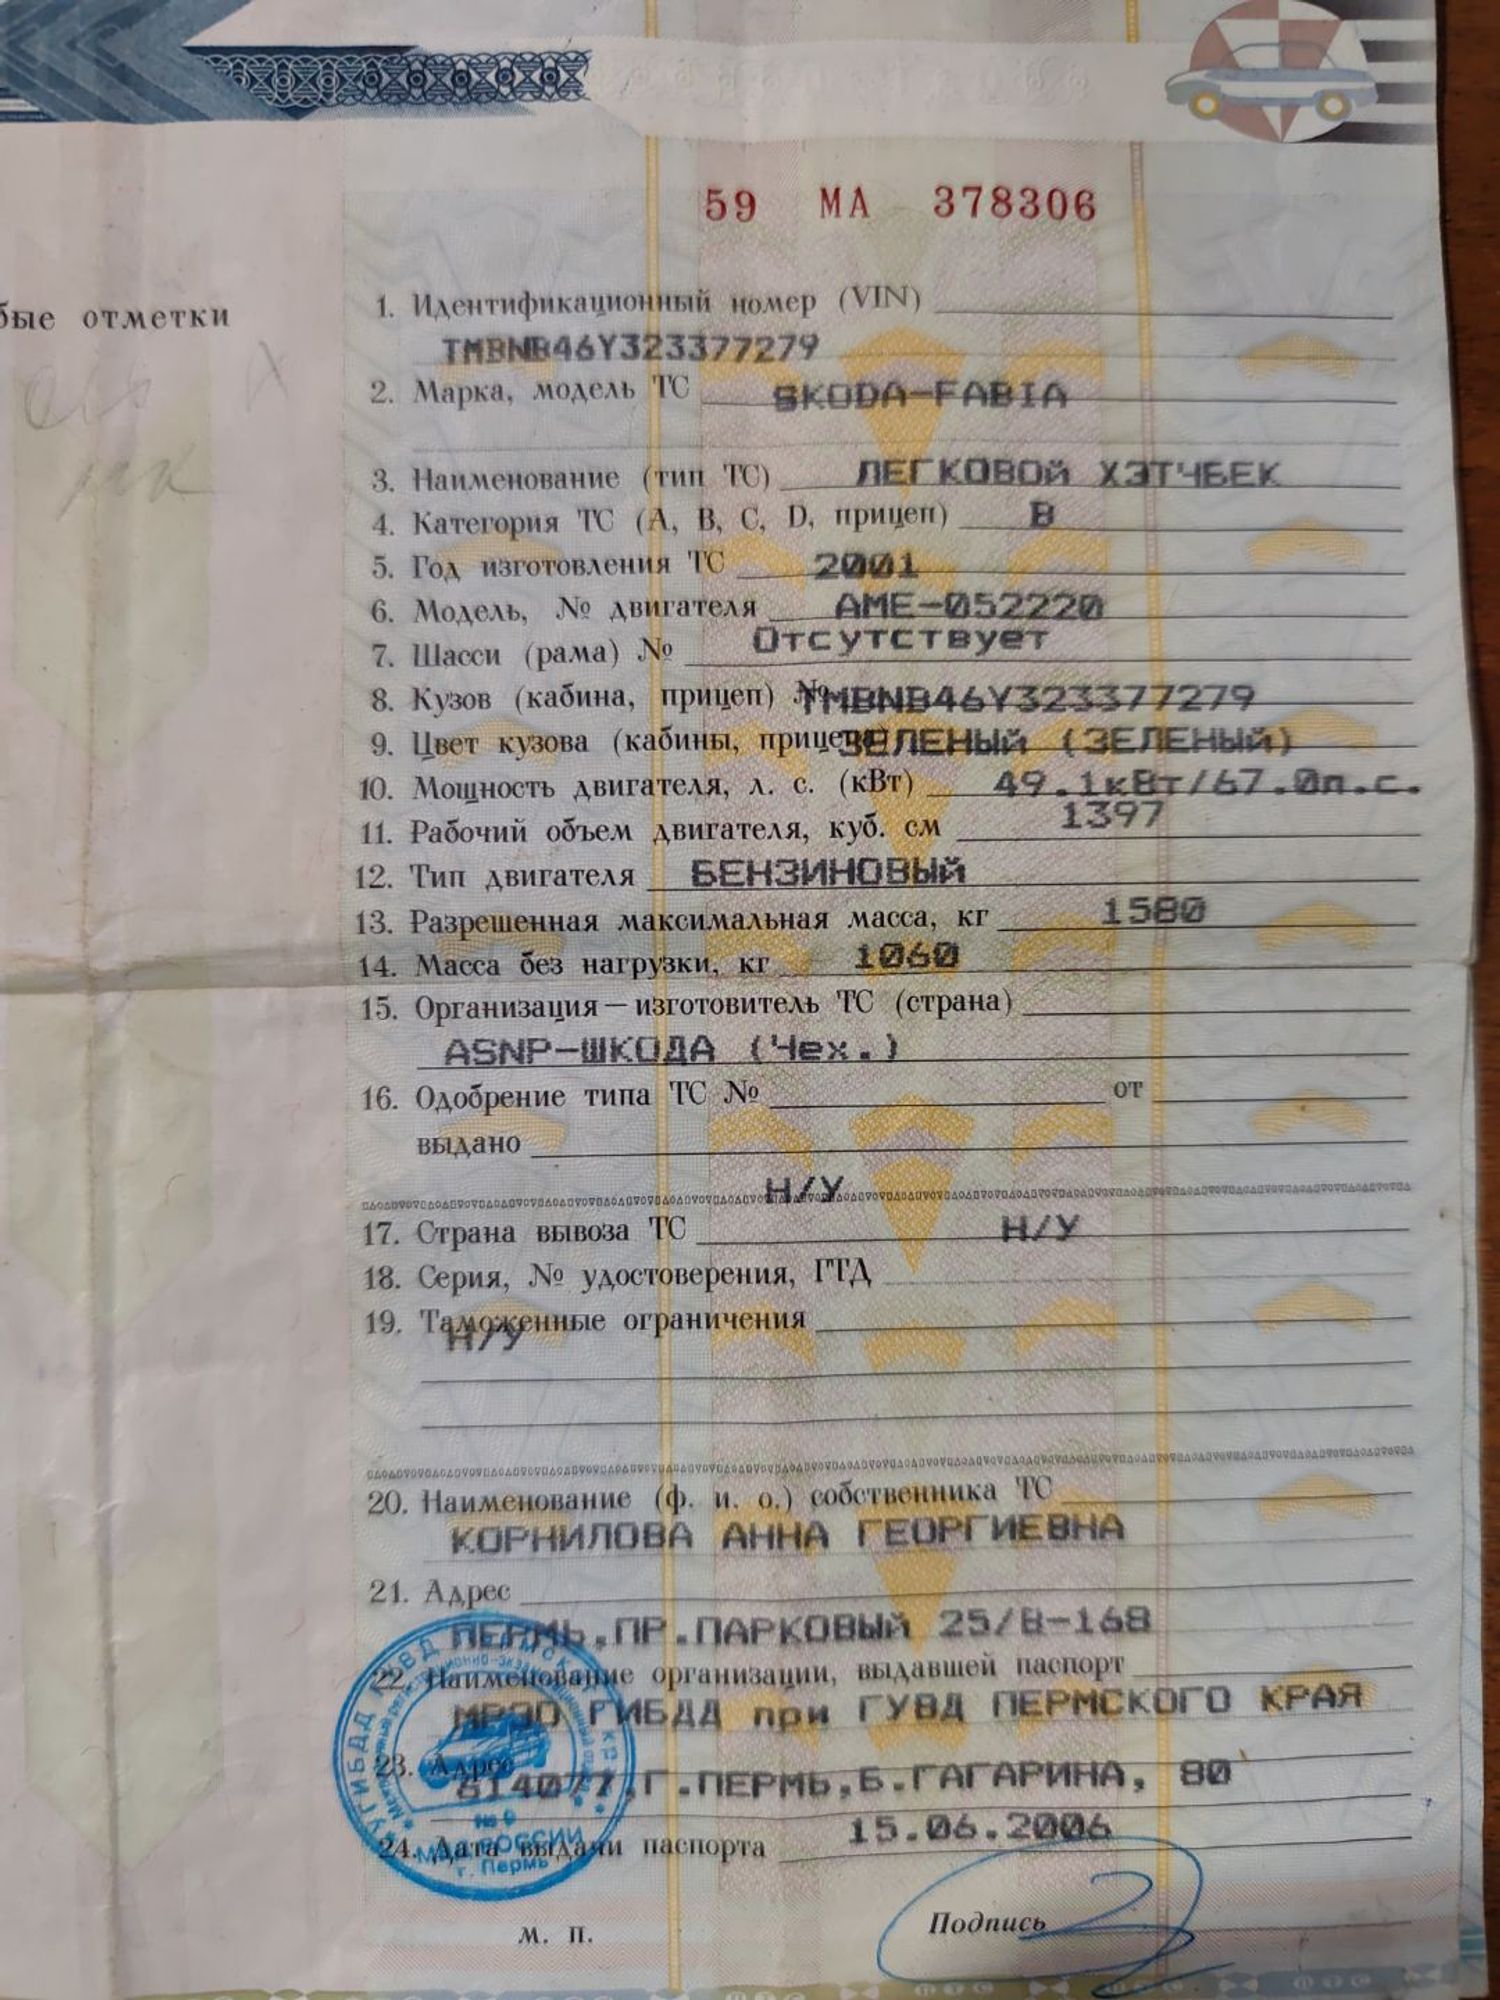 59 МА 378306
бые отметки
1. Идентификационный номер (VIN)
TMBNB46Y323377279
2. Марка, модель ТС SKODA-FABIA
3. Наименование (тип ТС) ЛЕГКОВОЙ ХЭТЧБЕК
4. Категория ТС (A, B, C, D, прицеп) В
5. Год изготовления ТС 2001
6. Модель, № двигателя AME-052220
7. Шасси (рама) № Отсутствует
8. Кузов (кабина, прицеп) № TMBNB46Y323377279
9. Цвет кузова (кабины, прицепа) ЗЕЛЕНЫЙ (ЗЕЛЕНЫЙ)
10. Мощность двигателя, л. с. (кВт) 49.1кВт/67.0л.с.
11. Рабочий объем двигателя, куб. см 1397
12. Тип двигателя БЕНЗИНОВЫЙ
13. Разрешенная максимальная масса, кг 1580
14. Масса без нагрузки, кг 1060
15. Организация — изготовитель ТС (страна)
ASNP-ШКОДА (Чех.)
16. Одобрение типа ТС № от
выдано
Н/У
17. Страна вывоза ТС Н/У
18. Серия, № удостоверения, ГТД
19. Таможенные ограничения
Н/У
20. Наименование (ф. и. о.) собственника ТС
КОРНИЛОВА АННА ГЕОРГИЕВНА
21. Адрес
ПЕРМЬ,ПР.ПАРКОВЫЙ 25/В-168
22. Наименование организации, выдавшей паспорт
МРЭО ГИБДД при ГУВД ПЕРМСКОГО КРАЯ
23. Адрес
614077,Г.ПЕРМЬ,Б.ГАГАРИНА, 80
24. Дата выдачи паспорта 15.06.2006
МВД РОССИИ
г. Пермь
М. П.
Подпись